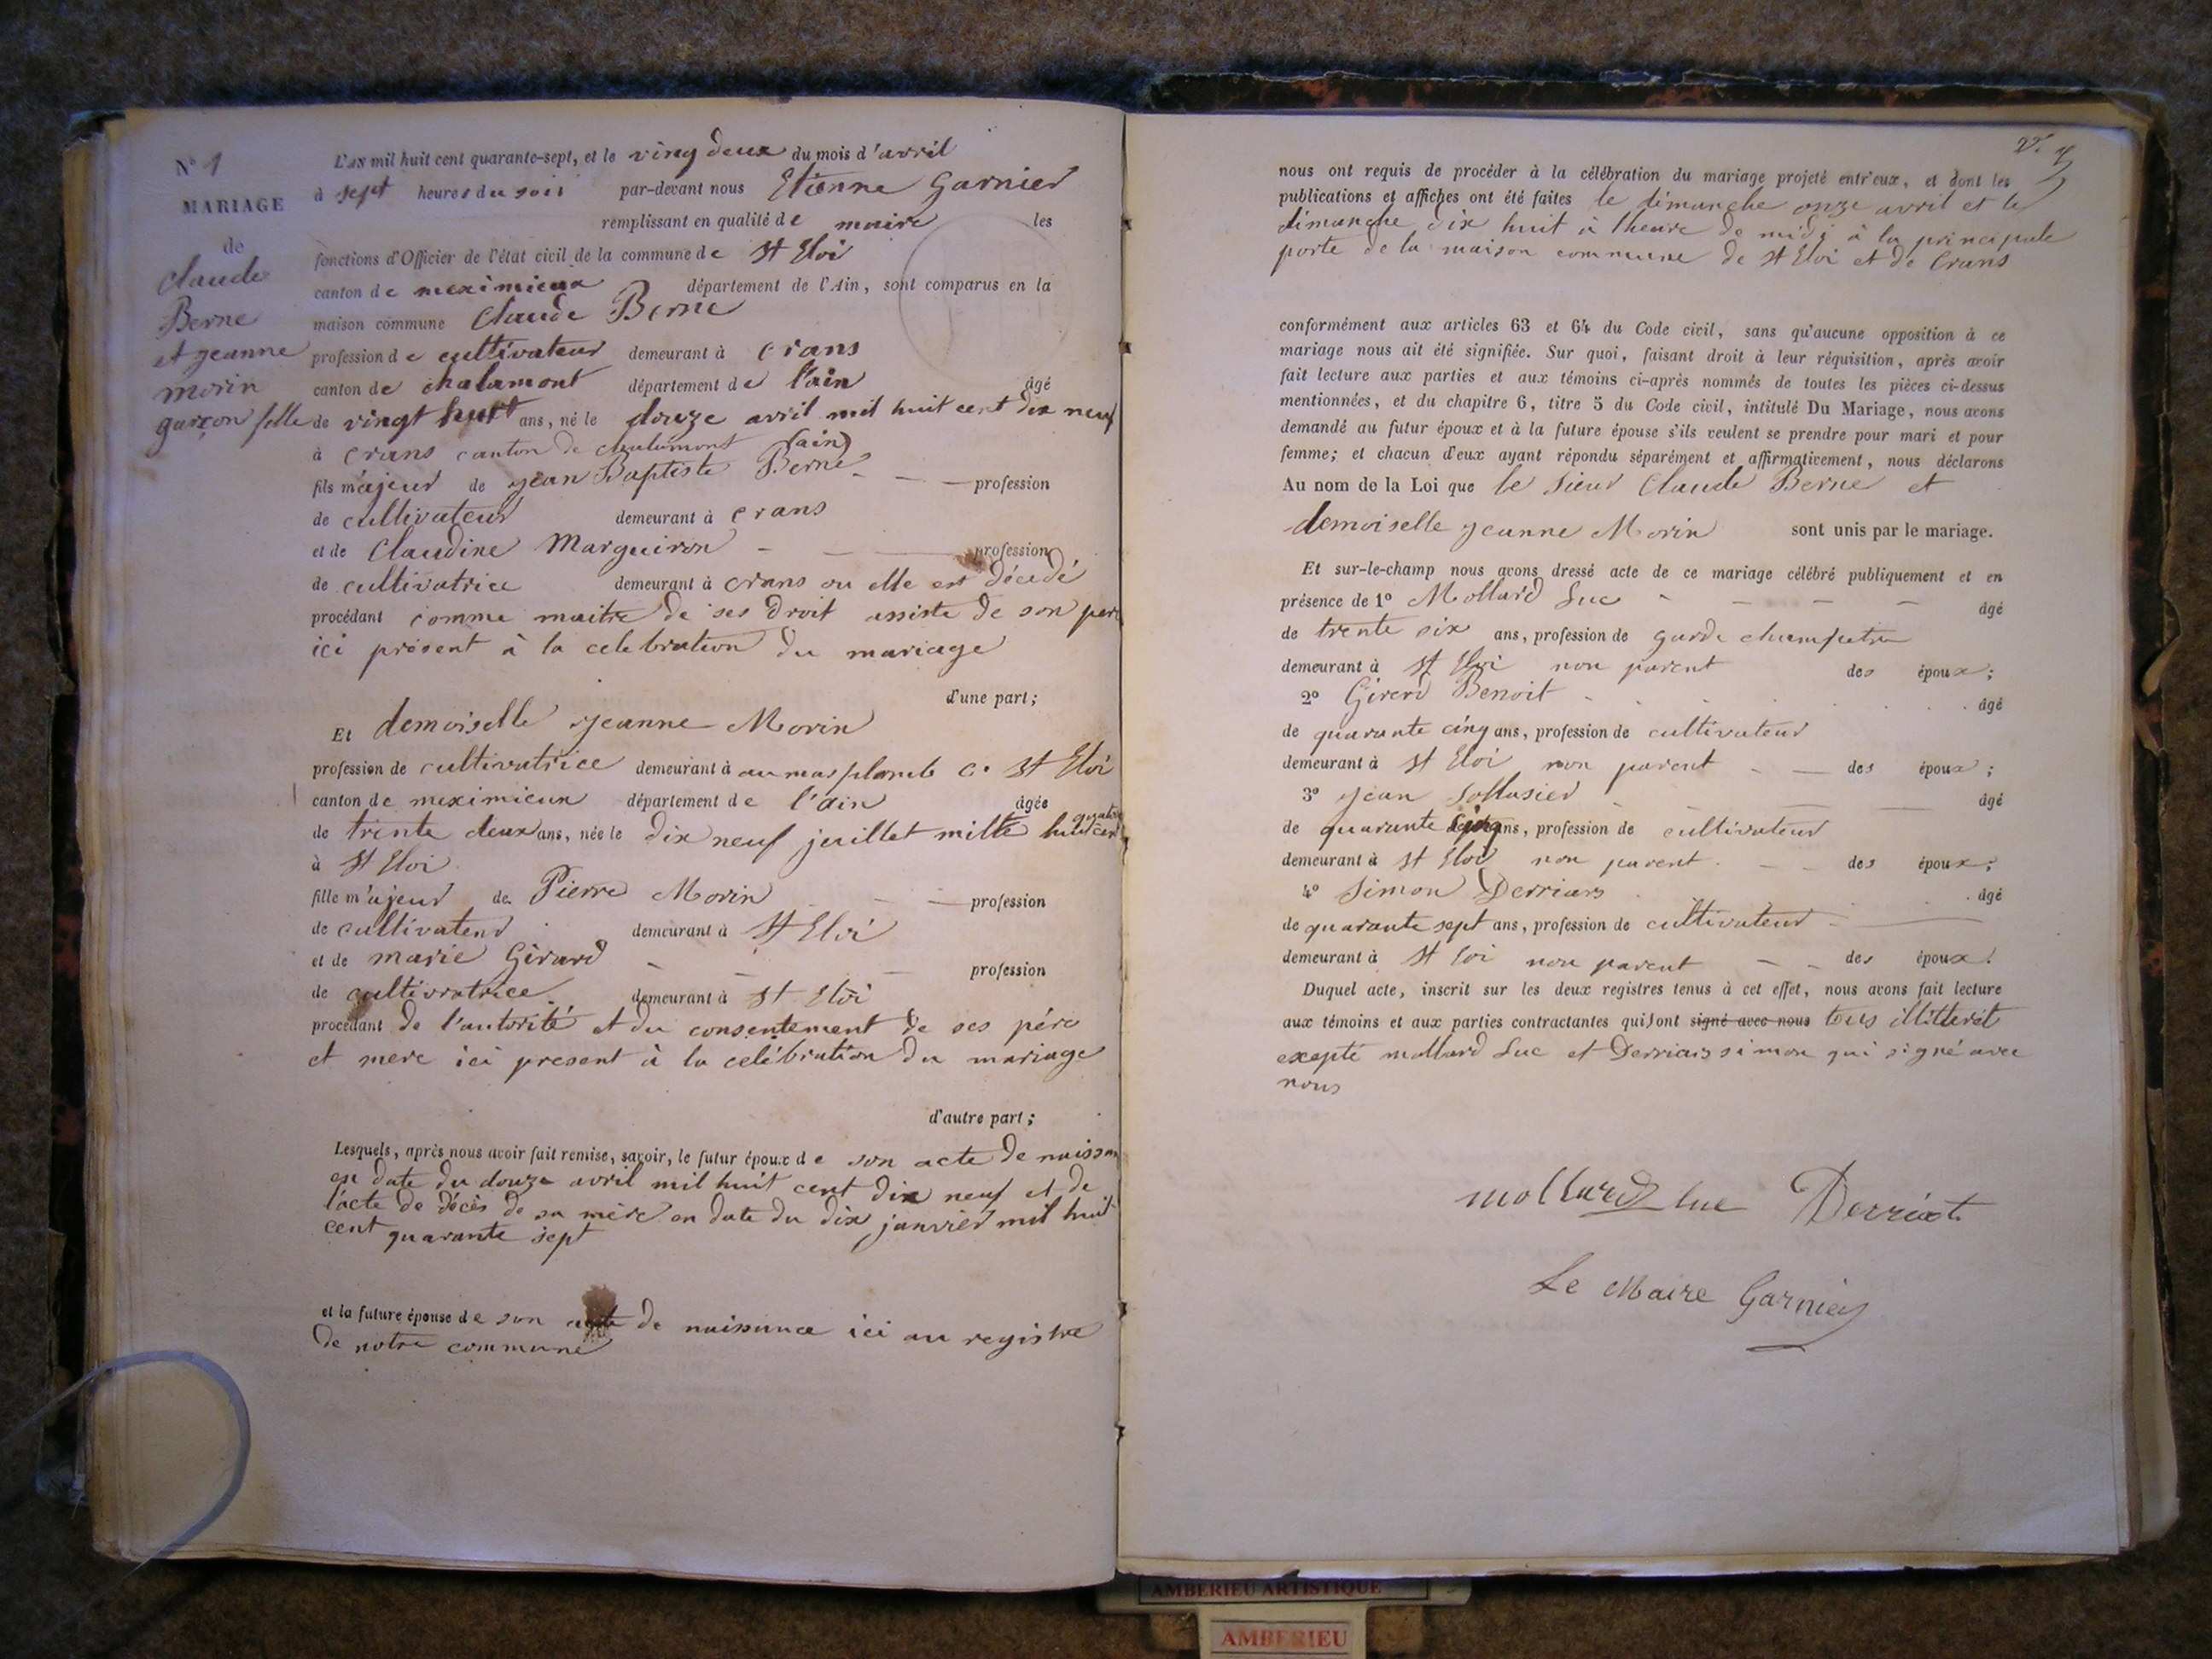 N° 1
MARIAGE
de
Claude
Berne
et jeanne
morin
garçon fille
L'AN mil huit cent quarante-sept, et le ving deux du mois d'avril
à sept heures du soir par-devant nous Etienne Garnier
remplissant en qualité de maire les
fonctions d'Officier de l'état civil de la commune de St Eloi
canton de meximieux département de l'Ain, sont comparus en la
maison commune Claude Berne
profession de cultivateur demeurant à crans
canton de chalamont département de l'ain âgé
de vingt huit ans, né le douze avril mil huit cent dix neuf
à crans canton de chalamont (ain)
fils majeur de jean Baptiste Berne - - - profession
de cultivateur demeurant à crans
et de Claudine Marguiron - - - profession
de cultivatrice demeurant à crans ou elle est décédé
procédant comme maitre de ses droit assiste de son pere
ici présent à la celebration du mariage
d'une part;
Et demoiselle jeanne Morin
profession de cultivatrice demeurant à au mas plomb c. St Eloi
canton de meximieux département de l'ain âgée
de trente deux ans, née le dix neuf juillet mille huit cent quatre
à St Eloi
fille majeur de Pierre Morin - - profession
de cultivateur demeurant à St Eloi
et de marie Girard - - - profession
de cultivatrice demeurant à St Eloi
procédant de l'autorité et du consentement de ses père
et mere ici present à la celébration du mariage
d'autre part;
Lesquels, après nous avoir fait remise, savoir, le futur époux de son acte de naissan
en date du douze avril mil huit cent dix neuf et de
l'acte de décès de sa mère en date du dix janvier mil huit
cent quarante sept
et la future épouse de son acte de naissance ici au registre
de notre commune
nous ont requis de procéder à la célébration du mariage projeté entr'eux, et dont les
publications et affiches ont été faites le dimanche onze avril et le
dimanche dix huit à l'heure de midi à la principale
porte de la maison commune de St Eloi et de Crans
conformément aux articles 63 et 64 du Code civil, sans qu'aucune opposition à ce
mariage nous ait été signifiée. Sur quoi, faisant droit à leur réquisition, après avoir
fait lecture aux parties et aux témoins ci-après nommés de toutes les pièces ci-dessus
mentionnées, et du chapitre 6, titre 5 du Code civil, intitulé Du Mariage, nous avons
demandé au futur époux et à la future épouse s'ils veulent se prendre pour mari et pour
femme; et chacun d'eux ayant répondu séparément et affirmativement, nous déclarons
Au nom de la Loi que le sieur Claude Berne et
demoiselle jeanne Morin sont unis par le mariage.
Et sur-le-champ nous avons dressé acte de ce mariage célébré publiquement et en
présence de 1° Mollard Luc - - - - âgé
de trente six ans, profession de garde champetre
demeurant à St Eloi non parent des époux;
2° Girerd Benoit - âgé
de quarante cinq ans, profession de cultivateur
demeurant à St Eloi non parent - - des époux;
3° jean âgé
de quarante cinq ans, profession de cultivateur
demeurant à St Eloi non parent - - des époux;
4° Simon Derrias âgé
de quarante sept ans, profession de cultivateur
demeurant à St Eoi non parent - - des époux.
Duquel acte, inscrit sur les deux registres tenus à cet effet, nous avons fait lecture
aux témoins et aux parties contractantes qui sont signé avec nous tous illitterét
exepté mollard Luc et Derrias simon qui signé avec
nous
mollard luc Derriat
Le Maire Garnier
AMBERIEU ARTISTIQUE
AMBERIEU